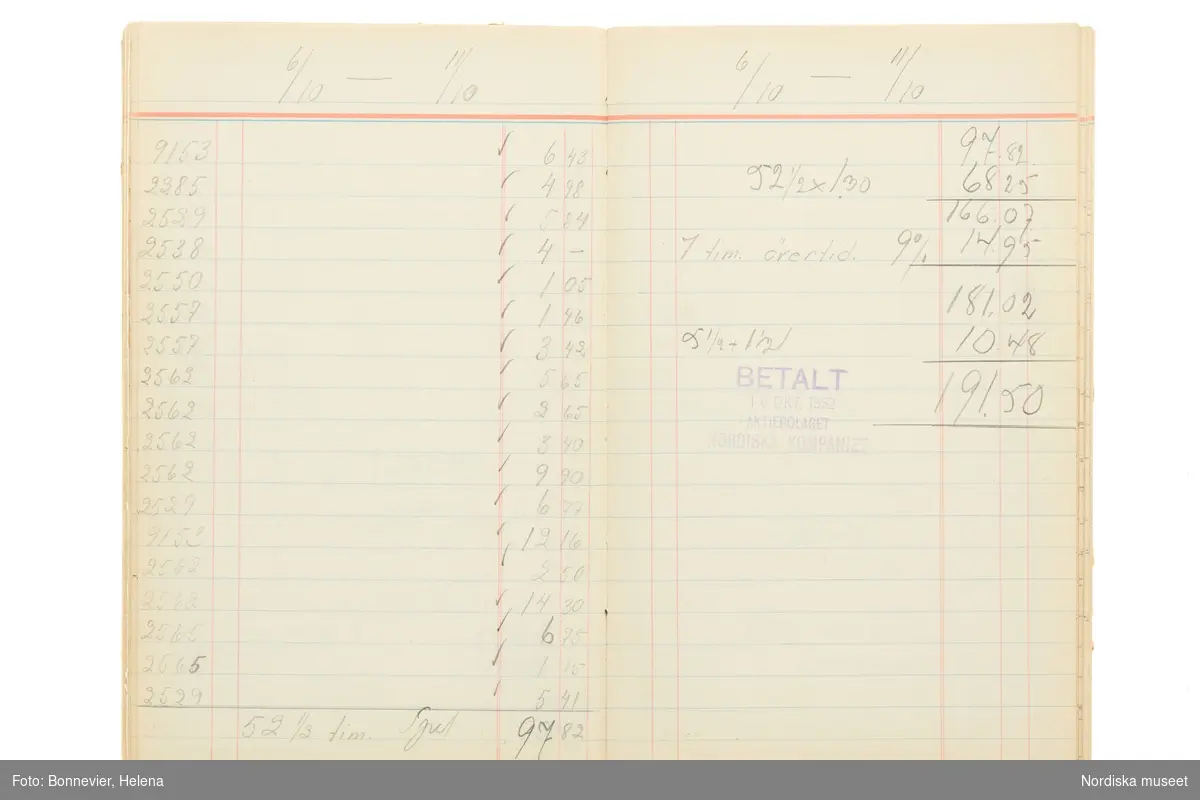 6/10 — 11/10
9153 6 43
2385 4 98
2529 5 84
2538 4 –
2550 1 05
2557 1 46
2557 3 42
2562 5 65
2562 2 65
2562 3 40
2562 9 90
2529 6 77
9153 12 16
2562 2 50
2562 14 30
2565 6 75
2565 1 15
2529 5 41
52 1/2 tim. 97 82
6/10 — 11/10
97.82
52 1/2 x 1.30 68 25
166.07
7 tim. övertid. 9% 14.95
181.02
5 1/2 + 1 1/2 10.48
191.50
BETALT
OKT. 1952
AKTIEBOLAGET
NORDISKA KOMPANIET
Foto: Bonnevier, Helena
Nordiska museet